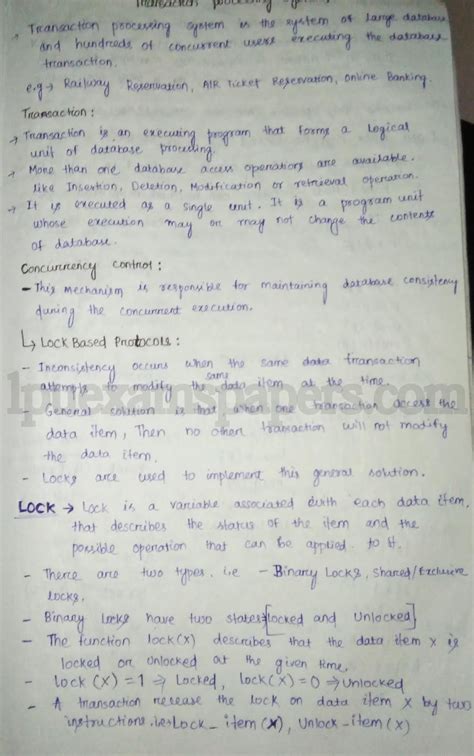 Transaction processing system
→ Transaction processing system is the system of large database
and hundreds of concurrent users executing the database
transaction.
e.g → Railway Reservation, AIR Ticket Reservation, Online Banking.
Transaction :
→ Transaction is an executing program that forms a logical
unit of database processing.
→ More than one database access operations are available.
like Insertion, Deletion, Modification or retrieval operation.
→ It is executed as a single unit. It is a program unit
whose execution may or may not change the contents
of database.
Concurrency control :
- This mechanism is responsible for maintaining database consistency
during the concurrent execution.
↳ Lock Based Protocols :
- Inconsistency occurs when the same data transaction
attempts to modify the same data item at the time.
- General solution is that when one transaction access the
data item, Then no other transaction will not modify
the data item.
- Locks are used to implement this general solution.
LOCK → Lock is a variable associated with each data item,
that describes the status of the item and the
possible operation that can be applied to it.
- There are two types. i.e - Binary Locks, Shared/Exclusive
locks.
- Binary Locks have two states [locked and Unlocked]
- The function lock(X) describes that the data item X is
locked or Unlocked at the given time.
- Lock (X) = 1 ⇒ Locked, lock(X) = 0 ⇒ Unlocked
- A transaction release the lock on data item X by two
instructions. i.e Lock_item(X), Unlock_item(X)
lpuexamspapers.com